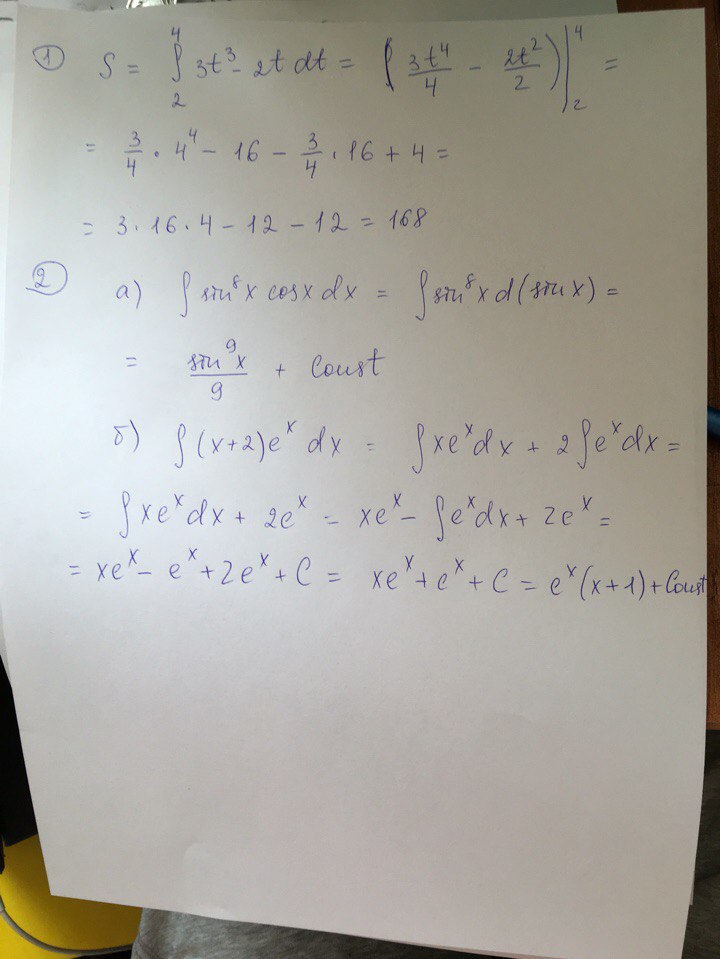 1 S = ∫₂⁴ 3t³ - 2t dt = (3t⁴/4 - 2t²/2)|₂⁴ =
= 3/4 · 4⁴ - 16 - 3/4 · 16 + 4 =
= 3 · 16 · 4 - 12 - 12 = 168
2 а) ∫ sin⁸x cosx dx = ∫ sin⁸x d(sinx) =
= sin⁹x/9 + Const
б) ∫ (x+2)eˣ dx = ∫ xeˣdx + 2∫eˣdx =
= ∫ xeˣdx + 2eˣ = xeˣ - ∫eˣdx + 2eˣ =
= xeˣ - eˣ + 2eˣ + C = xeˣ + eˣ + C = eˣ(x+1) + Const